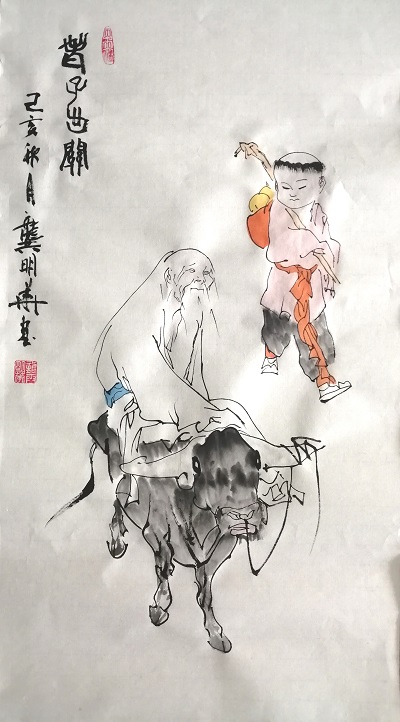 老子出關
己亥秋月龔明華畫